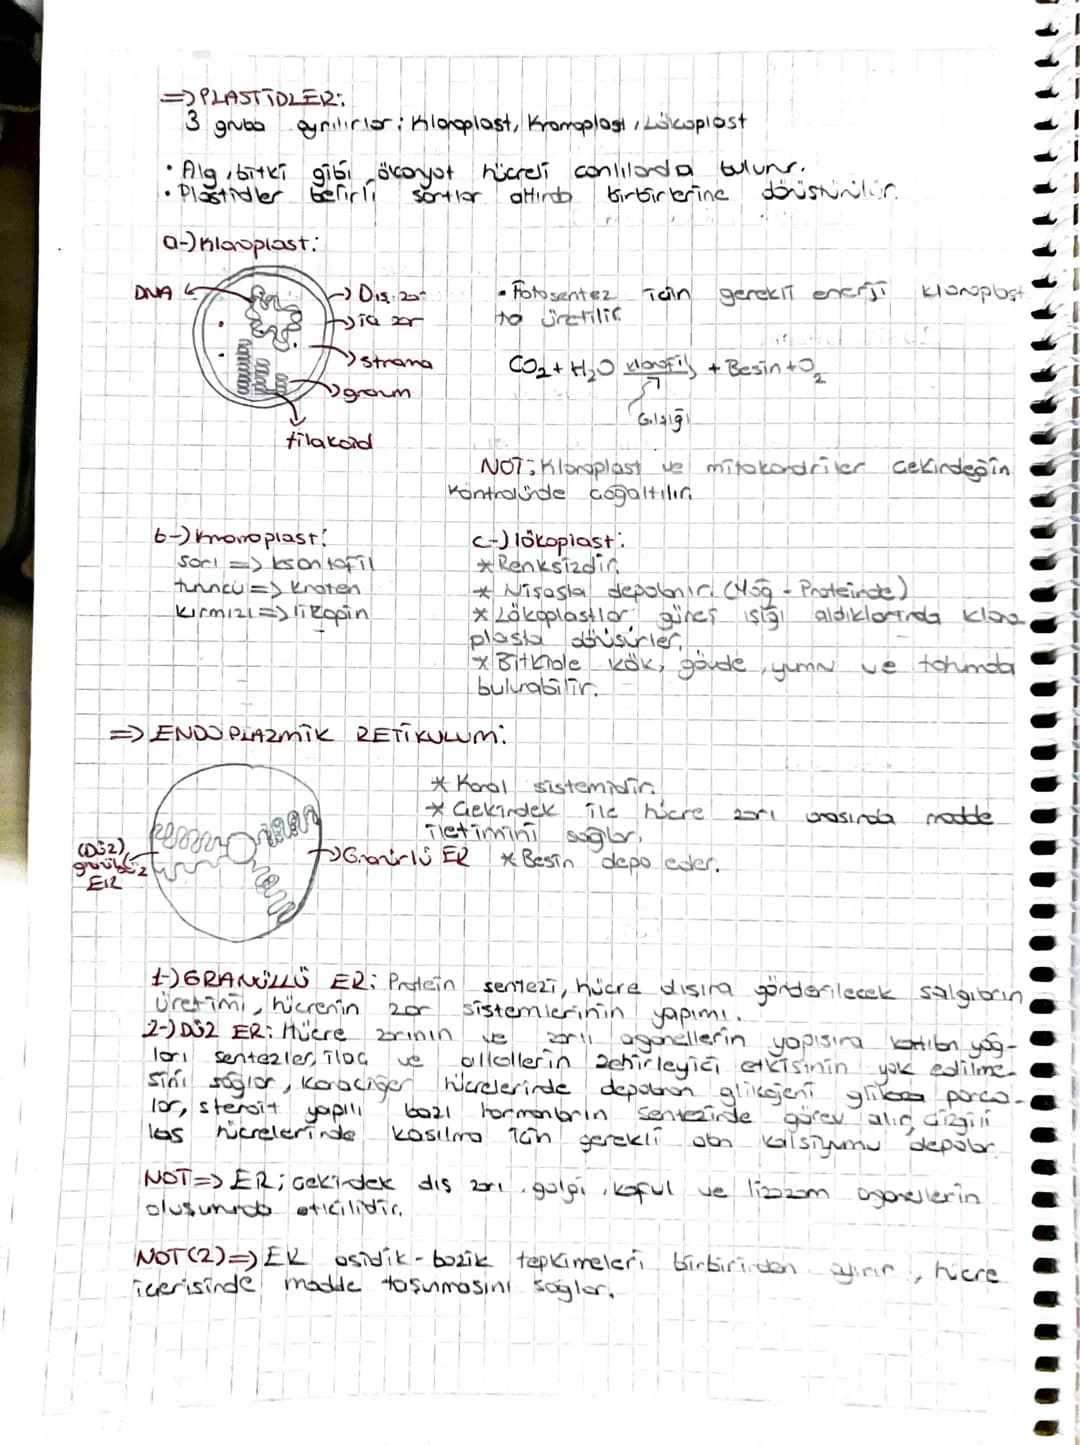 => PLASTİDLER:
3 gruba ayrılırlar: Kloroplast, Kromoplast, Lökoplast
• Alg, bitki gibi ökaryot hücreli canlılarda bulunur.
• Plastidler belirli şartlar altında birbirlerine dönüştürülür.
a-) Kloroplast:
DNA
Dış zar
iç zar
stroma
granum
tilakoid
• Fotosentez için gerekli enerji kloroplast
ta üretilir.
CO2 + H2O klorofil + Besin + O2
G.ışığı
NOT: Kloroplast ve mitokondriler çekirdeğin
kontrolünde çoğaltılır.
b-) kromoplast:
sarı => ksantofil
turuncu => kroten
kırmızı => likopin
c-) lökoplast:
* Renksizdir.
* Nişasta depolanır. (Yağ - Proteinde)
* Lökoplastlar güneş ışığı aldıklarında kloro
plasta dönüşürler.
* Bitkide kök, gövde, yumru ve tohumda
bulunabilir.
=> ENDOPLAZMİK RETİKULUM:
* Kanal sistemidir.
* Çekirdek ile hücre zarı arasında madde
iletimini sağlar.
* Besin depo eder.
(Düz)
ER
Granürlü ER
1-) GRANÜLLÜ ER: Protein sentezi, hücre dışına gönderilecek salgıların
üretimi, hücrenin zar sistemlerinin yapımı.
2-) DÜZ ER: Hücre zarının ve zarlı organellerin yapısına katılan yağ-
ları sentezler, ilaç ve alkollerin zehirleyici etkisinin yok edilme-
sini sağlar, karaciğer hücrelerinde depolanan glikojeni glikoza parça-
lar, steroit yapılı bazı hormonların sentezinde görev alır, çizgili
kas hücrelerinde kasılma için gerekli olan kalsiyumu depolar.
NOT => ER; çekirdek dış zarı, golgi, koful ve lizozom organellerin
oluşumunda etkilidir.
NOT(2) => ER asidik - bazik tepkimeleri birbirinden ayırır, hücre
içerisinde madde taşınmasını sağlar.